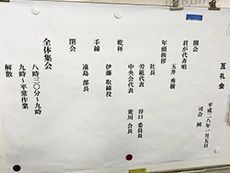 互礼会
平成二八年一月五日
司会 岡
開会
君が代斉唱
玉井 秀樹
年頭挨拶
社長
労組代表 谷口 委員長
中央会代表 荒川 会長
乾杯
伊藤 取締役
手締
遠島 部長
閉会
全体集会
八時三〇分〜九時
九時〜平常作業
解散